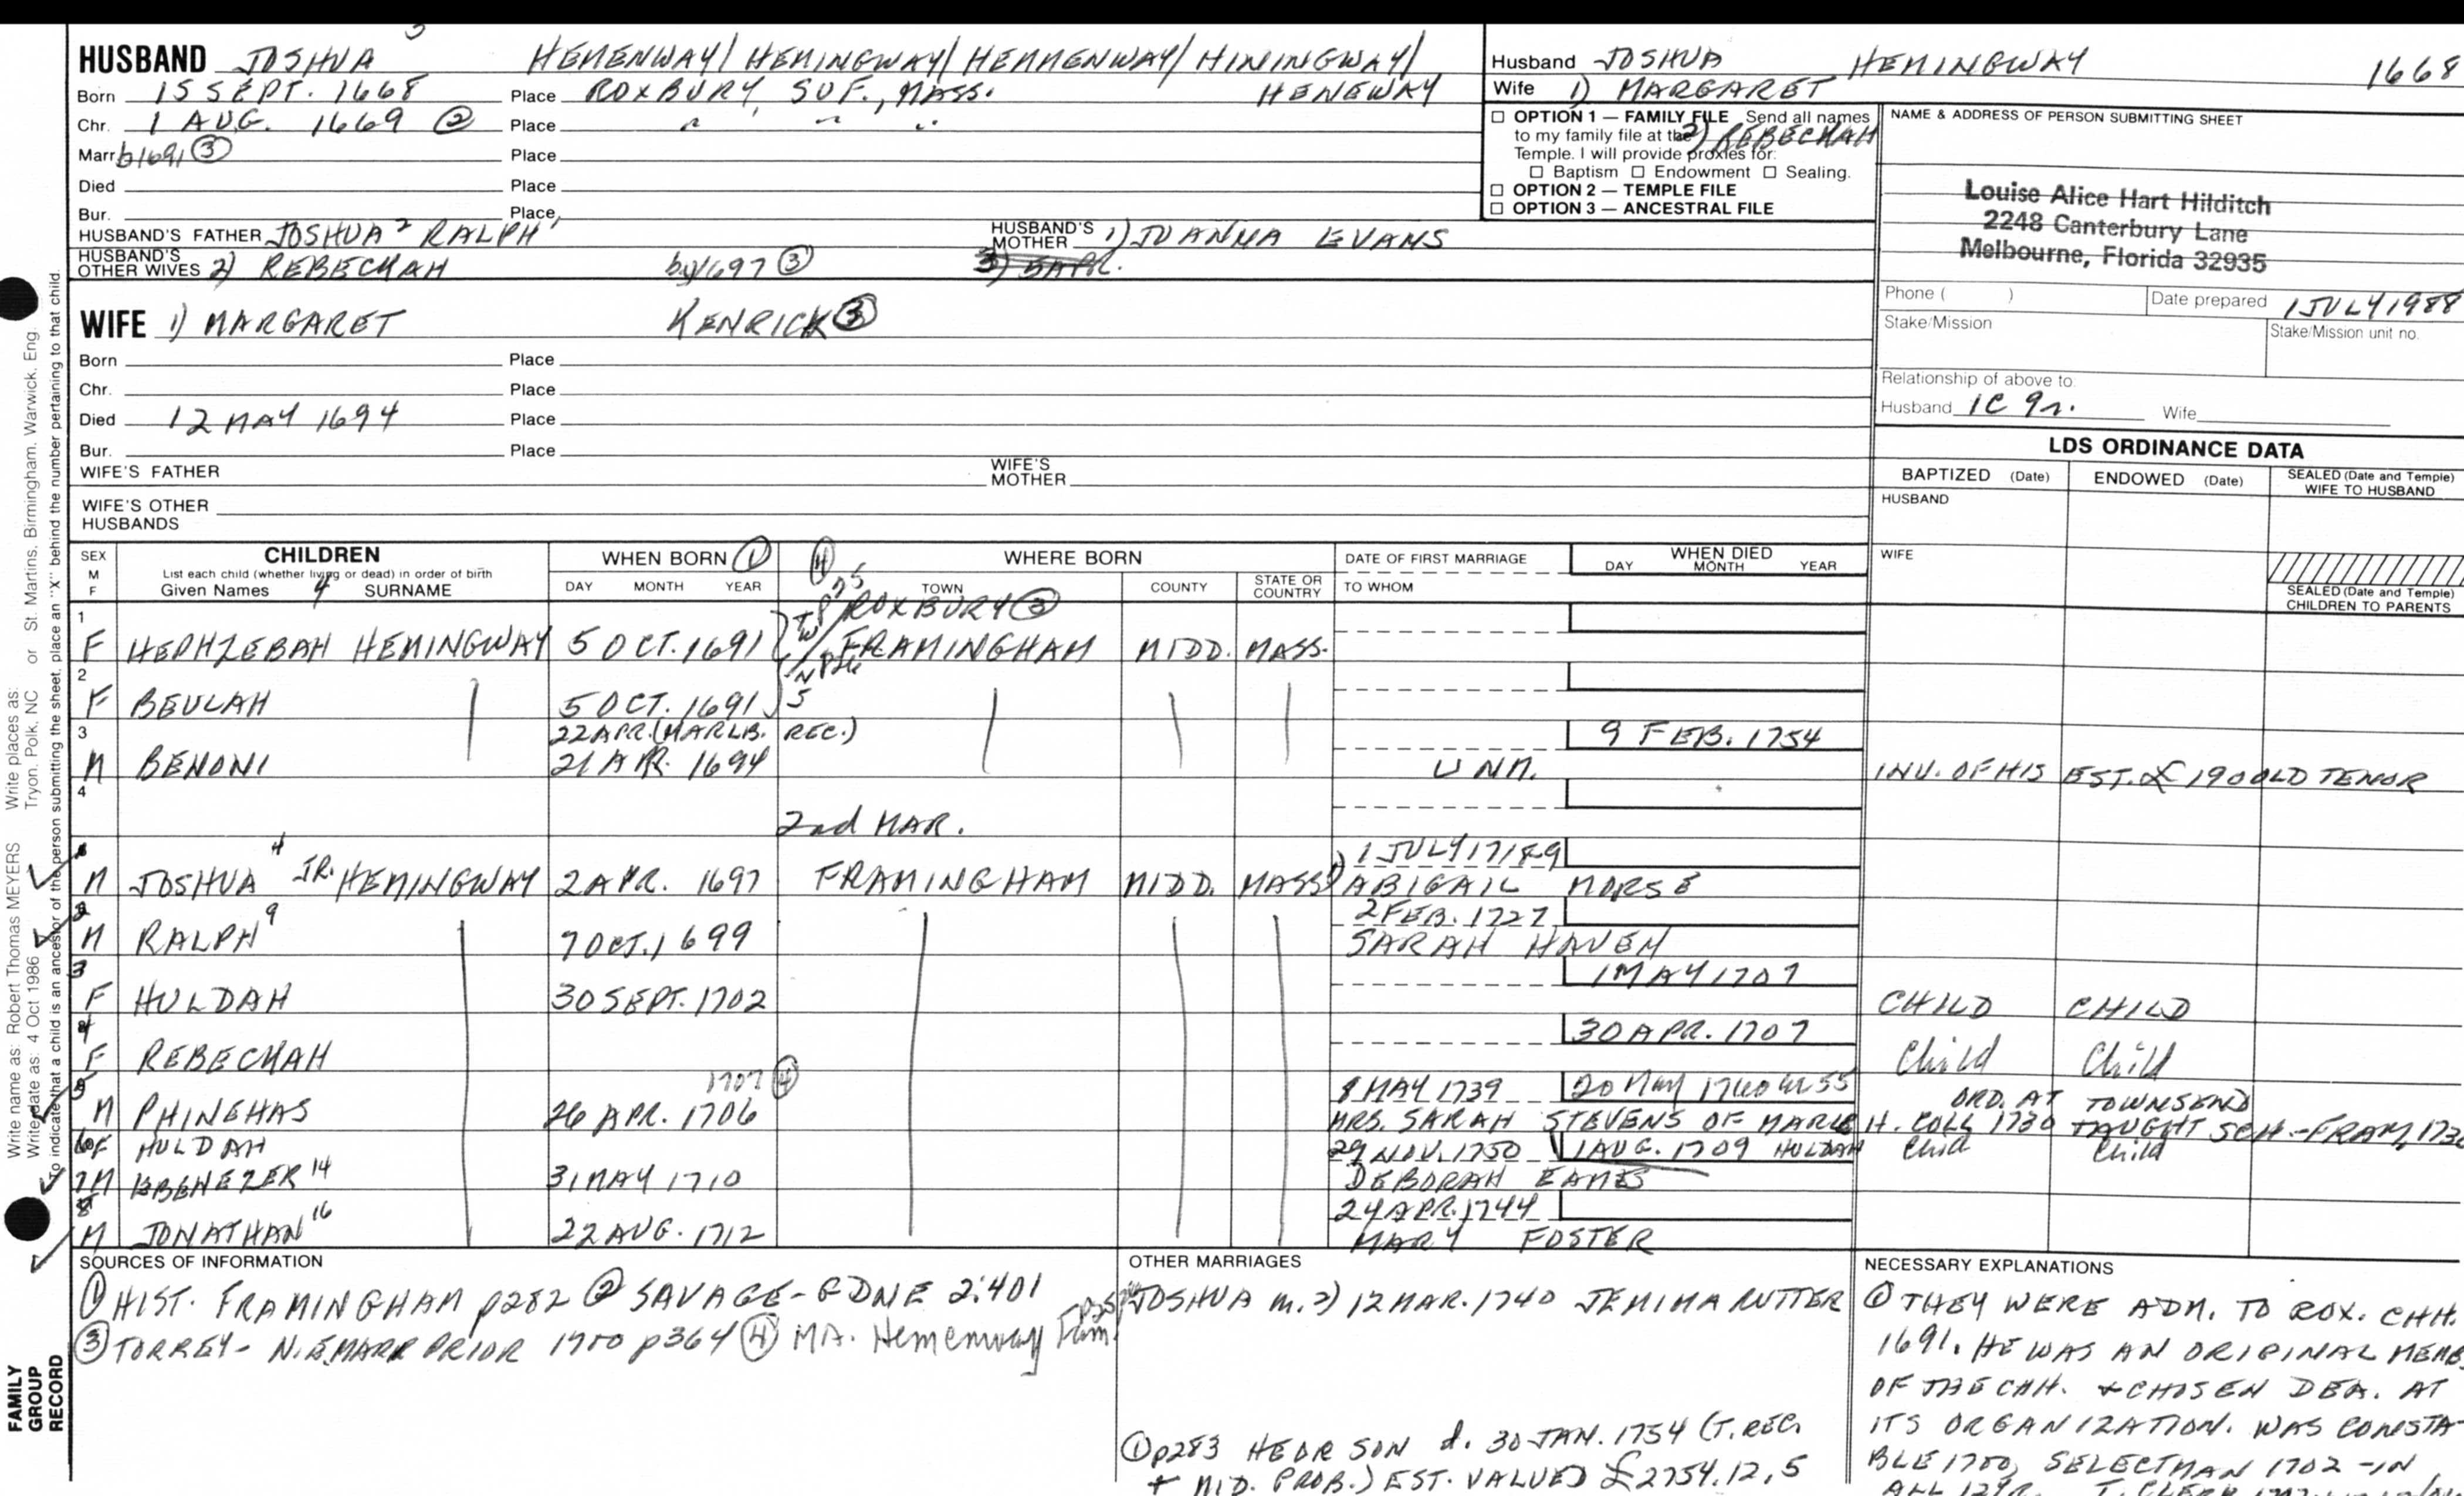 HUSBAND JOSHUA 3 HEMENWAY/HEMINGWAY/HEMMENWAY/HININGWAY/
HENEWAY
Born 15 SEPT. 1668 Place ROXBURY, SUF., MASS.
Chr. 1 AUG. 1669 ② Place " " "
Marr. b1691 ③ Place
Died Place
Bur. Place
HUSBAND'S FATHER JOSHUA 2 RALPH 1 HUSBAND'S MOTHER 1) JOANNA EVANS
HUSBAND'S OTHER WIVES 2) REBECKAH by 1697 ③
WIFE 1) MARGARET KENRICK ③
Born Place
Chr. Place
Died 12 MAY 1694 Place
Bur. Place
WIFE'S FATHER WIFE'S MOTHER
WIFE'S OTHER HUSBANDS
Husband JOSHUA HEMINGWAY 1668
Wife 1) MARGARET
2) REBECKAH
☐ OPTION 1 — FAMILY FILE Send all names
to my family file at the
Temple. I will provide proxies for:
☐ Baptism ☐ Endowment ☐ Sealing.
☐ OPTION 2 — TEMPLE FILE
☐ OPTION 3 — ANCESTRAL FILE
NAME & ADDRESS OF PERSON SUBMITTING SHEET
Louise Alice Hart Hilditch
2248 Canterbury Lane
Melbourne, Florida 32935
Phone ( ) Date prepared 1 JULY 1988
Stake/Mission Stake/Mission unit no.
Relationship of above to:
Husband 1C 9r. Wife
LDS ORDINANCE DATA
BAPTIZED (Date) ENDOWED (Date) SEALED (Date and Temple) WIFE TO HUSBAND
HUSBAND
WIFE
SEALED (Date and Temple) CHILDREN TO PARENTS
SEX M F CHILDREN
List each child (whether living or dead) in order of birth
Given Names 4 SURNAME
WHEN BORN ① DAY MONTH YEAR
④ WHERE BORN TOWN COUNTY STATE OR COUNTRY
DATE OF FIRST MARRIAGE TO WHOM
WHEN DIED DAY MONTH YEAR
ROXBURY ③
1 F HEPHZEBAH HEMINGWAY 5 OCT. 1691 FRAMINGHAM MIDD. MASS.
2 F BEULAH 5 OCT. 1691
22 APR. (MARLB. REC.) 9 FEB. 1754
3 M BENONI 21 APR. 1694 UNM. INV. OF HIS EST. £ 190 OLD TENOR
4 2nd MAR.
1 JULY 17/8-9
M JOSHUA 4 JR. HEMINGWAY 2 APR. 1697 FRAMINGHAM MIDD. MASS 1) ABIGAIL MORSE
2 FEB. 1727
2 M RALPH 9 7 OCT. 1699 SARAH HAVEN
1 MAY 1707
3 F HULDAH 30 SEPT. 1702 CHILD CHILD
30 APR. 1707
4 F REBECKAH Child Child
1707 ④ 8 MAY 1739 20 May 1760 ae 55 ORD. AT TOWNSEND
5 M PHINEHAS 26 APR. 1706 MRS. SARAH STEVENS OF MARLB H. COLL 1730 TAUGHT SCH.-FRAM. 173
6 F HULDAH 29 NOV. 1750 1 AUG. 1709 HULDAH Chid Child
7 M EBENEZER 14 31 MAY 1710 DEBORAH EAMES
24 APR. 1744
8 M JONATHAN 16 22 AUG. 1712 MARY FOSTER
SOURCES OF INFORMATION
① HIST. FRAMINGHAM p282 ② SAVAGE-GDNE 2:401
③ TORREY- N.E. MARR PRIOR 1700 p364 ④ MA. Hemenway Fam
OTHER MARRIAGES
JOSHUA m. 3) 12 MAR. 1740 JEMIMA RUTTER
① p283 HE OR SON d. 30 JAN. 1754 (T. REC.
+ MID. PROB.) EST. VALUED £2754.12.5
NECESSARY EXPLANATIONS
① THEY WERE ADM. TO ROX. CHH.
1691. HE WAS AN ORIGINAL MEMB
OF THE CHH. + CHOSEN DEA. AT
ITS ORGANIZATION. WAS CONSTA-
BLE 1700, SELECTMAN 1702 -IN
Write name as: Robert Thomas MEYERS Write places as: St. Martins, Birmingham, Warwick, Eng.
Write date as: 4 Oct 1986 Tryon, Polk, NC or
To indicate that a child is an ancestor of the person submitting the sheet, place an "X" behind the number pertaining to that child.
FAMILY
GROUP
RECORD